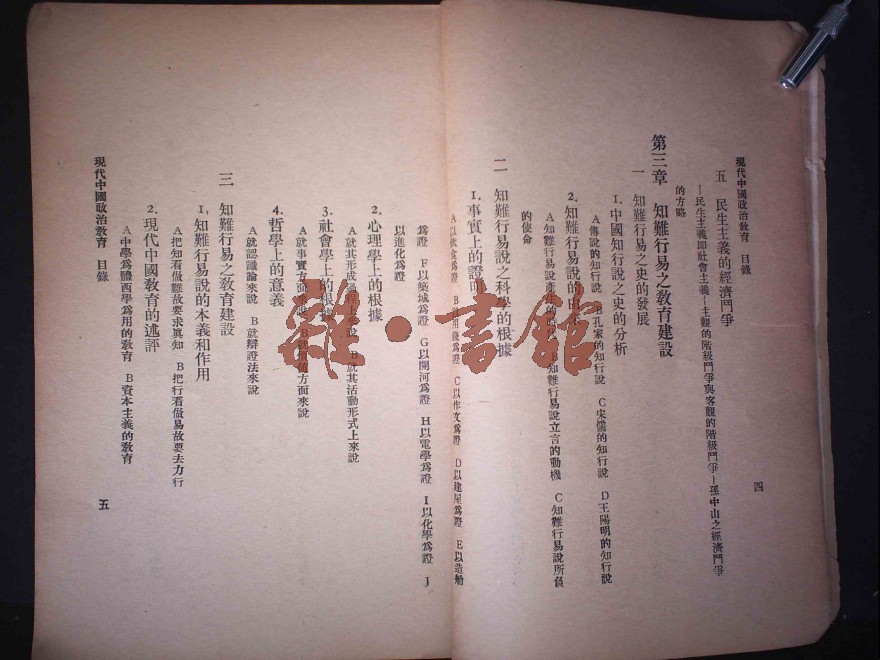 現代中國政治教育　目錄
四
五　民生主義的經濟鬥爭
—民生主義卽社會主義—主觀的階級鬥爭與客觀的階級鬥爭—孫中山之經濟鬥爭
的方略
第三章　知難行易之教育建設
一　知難行易之史的發展
1.中國知行說之史的分析
A傳說的知行說　B孔家的知行說　C宋儒的知行說　D王陽明的知行說
2.知難行易說的
A知難行易說產生的時　B知難行易說立言的動機　C知難行易說所負
的使命
二　知難行易說之科學的根據
1.事實上的證明
A以飲食爲證　B以用錢爲證　C以作文爲證　D以建屋爲證　E以造船
爲證　F以築城爲證　G以開河爲證　H以電學爲證　I以化學爲證　J
以進化爲證
2.心理學上的根據
A就其形成過程上來說　B就其活動形式上來說
3.社會學上的根據
A就事實方面來說　B就價值方面來說
4.哲學上的意義
A就認識論來說　B就辯證法來說
三　知難行易之教育建設
1.知難行易說的本義和作用
A把知看做難故要求眞知　B把行看做易故要去力行
2.現代中國教育的述評
A中學爲體西學爲用的教育　B資本主義的教育
現代中國政治教育　目錄
五
雜·書館